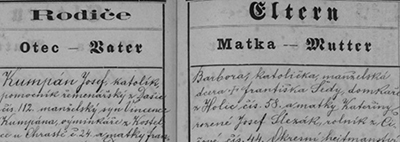 Rodiče
Otec — Vater
Kumpán Josef, katolík,
pomocník řemenářský z Dašic
čís. 112. manželský syn
Kumpána, výminkáře z Kostel
ce u Chrasti č. 24. a matky
Eltern
Matka — Mutter
Barbora, katolička, manželská
dcera † Františka Šedy, domkáře
z Holic čís. 53. a matky Kateřiny
rozené Josef Slezák, rolník z
čís. 44. Okresní hejtmanství